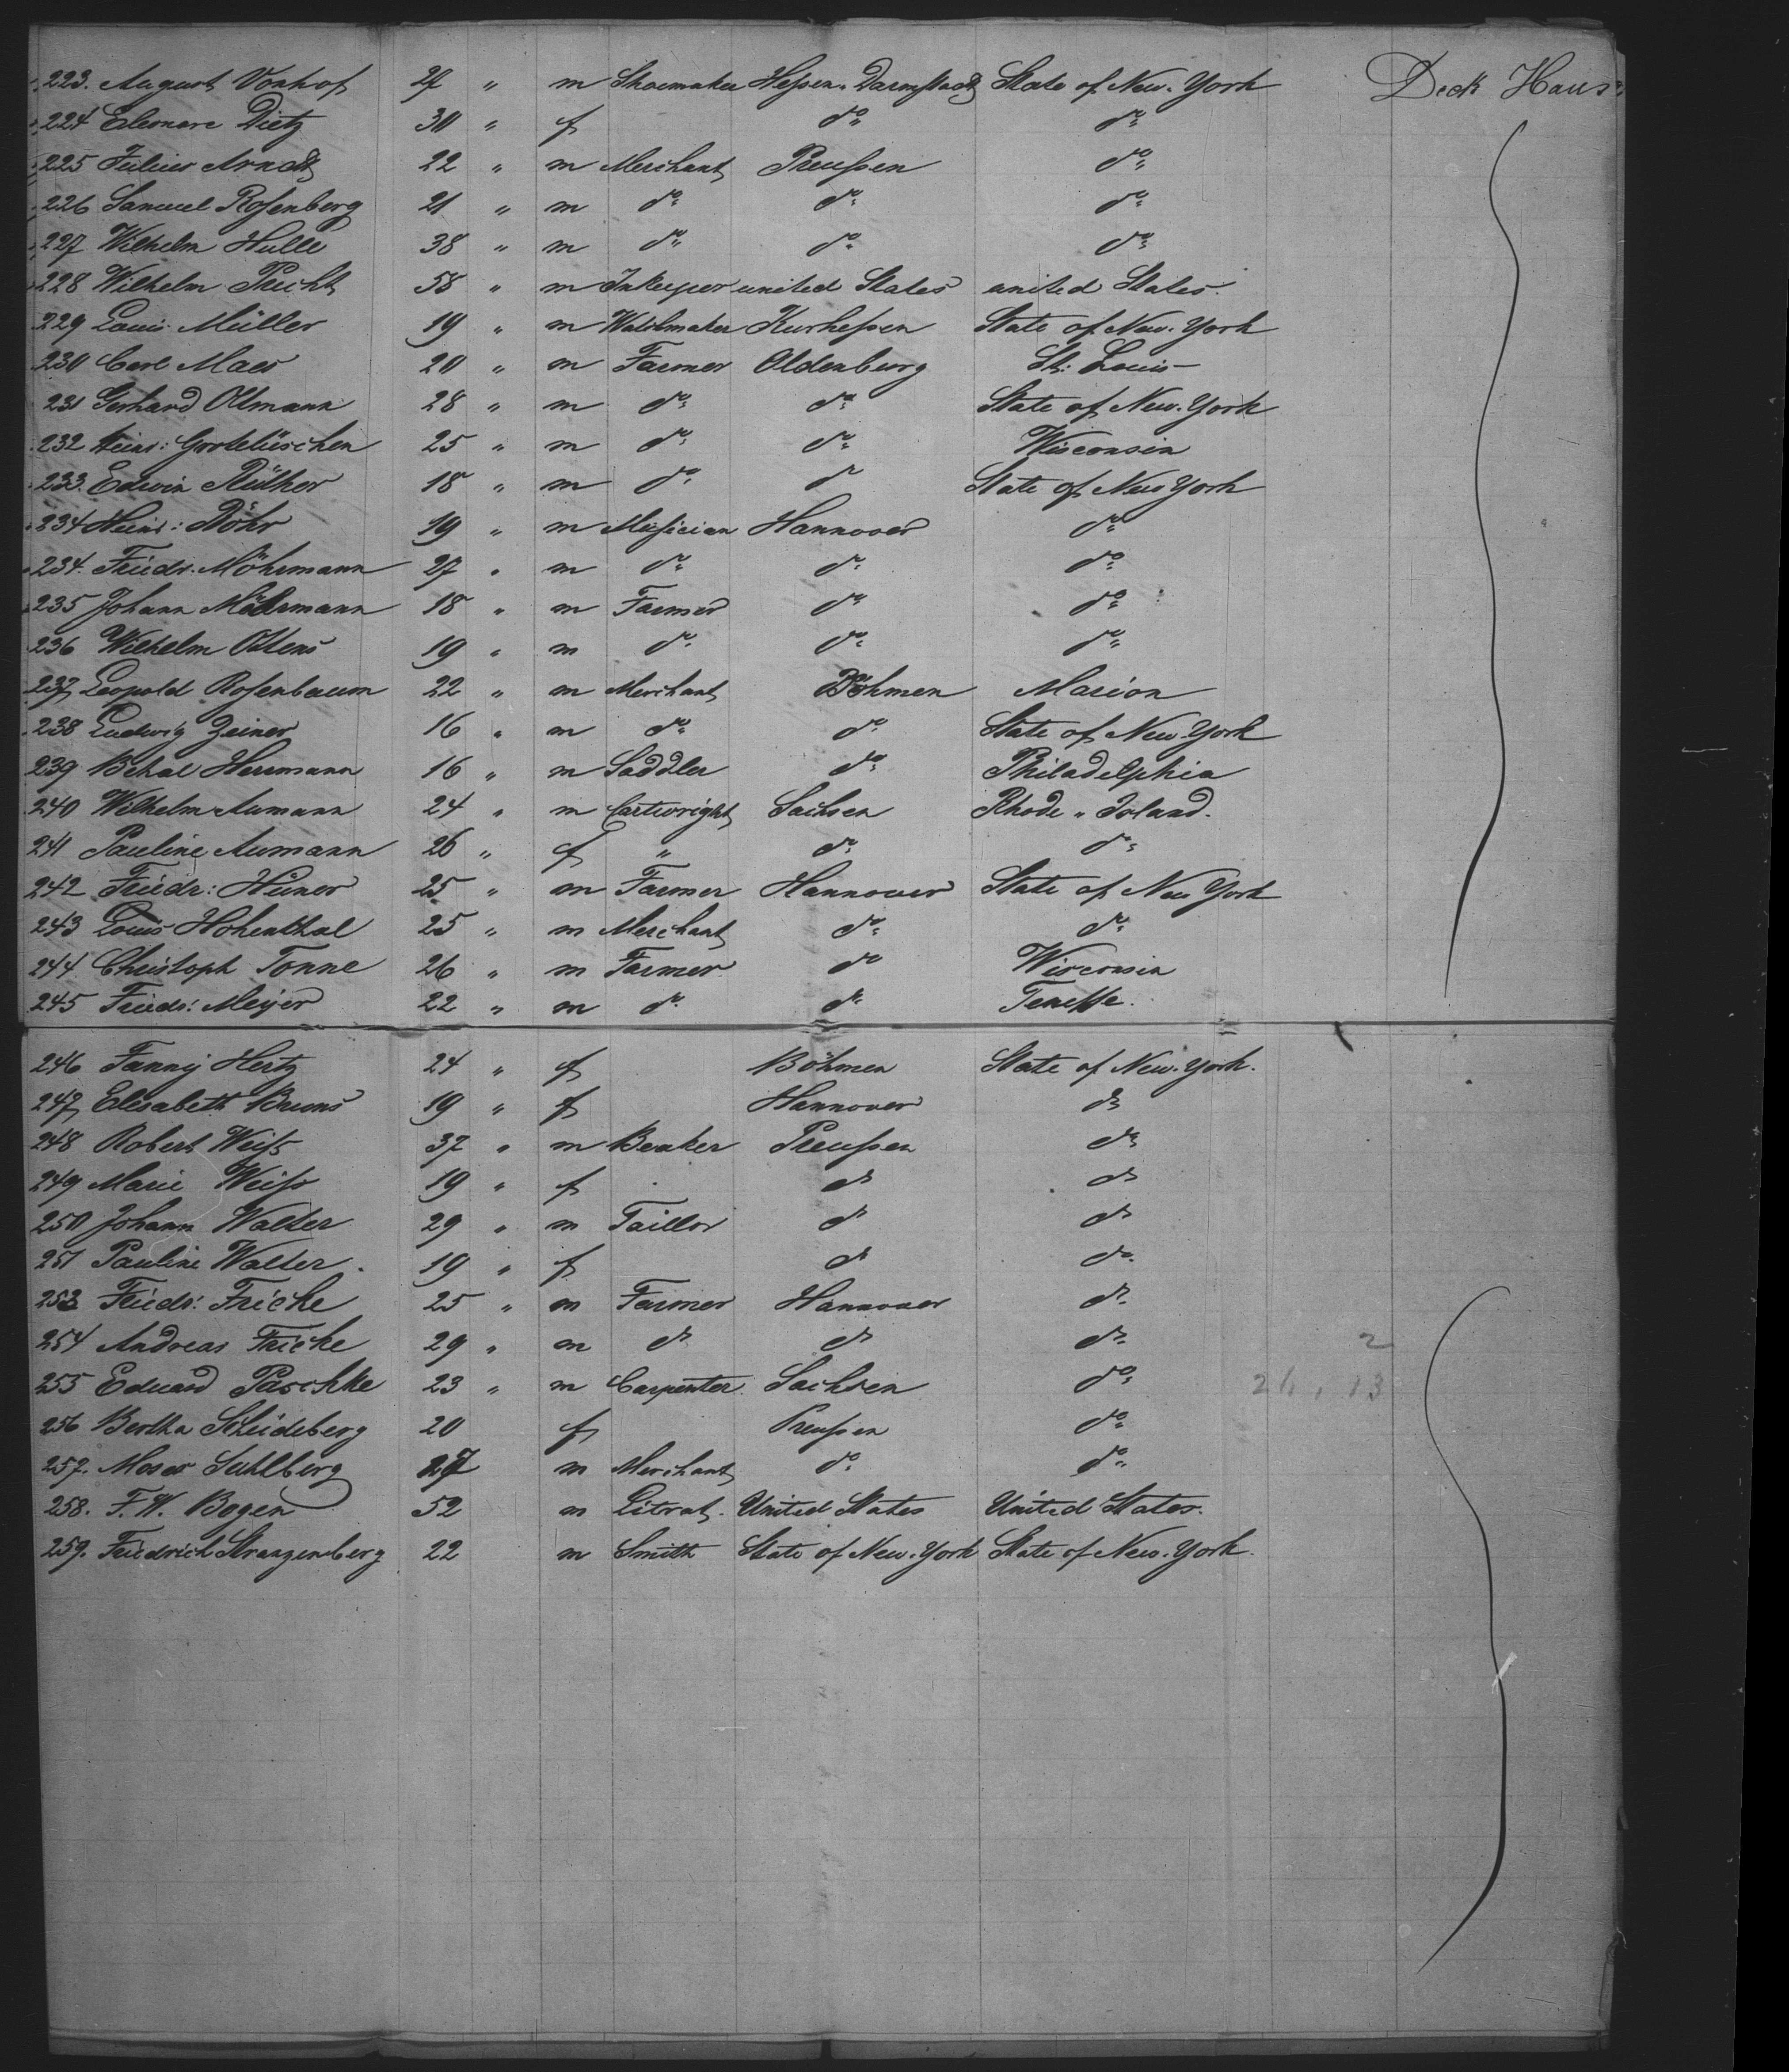 223. August Vonhof 29 " m Shoemaker Hessen. Darmstadt State of New. York Deck Haus
224 Eleonore Dietz 30 " f do do
225 Julius Arndt 22 " m Merchant Preußen do
226 Samuel Rosenberg 21 " m do do do
227 Wilhelm Hulle 38 " m do do do
228 Wilhelm Precht 58 " m Inkeeper united States united States.
229 Louis Müller 19 " m Watchmaker Kurhessen State of New. York
230 Carl Maes 20 " m Farmer Oldenburg St. Louis
231 Gerhard Oltmann 28 " m do do State of New. York
232 Heinr: Grotelüschen 25 " m do do Wisconsin
233. Edwin Rüther 18 " m do do State of New York
234 Heinr: Röhr 19 " m Musician Hannover do
234. Friedr. Möhrmann 27 " m do do do
235 Johann Möhrmann 18 " m Farmer do do
236 Wilhelm Ottens 19 " m do do do
237 Leopold Rosenbaum 22 " m Merchant Böhmen Marion
238 Ludwig Zeiner 16 " m do do State of New York
239 Behal Herrmann 16 " m Saddler do Philadelphia
240 Wilhelm Aumann 24 " m Cartwright Sachsen Rhode " Island.
241 Pauline Aumann 26 " f " do do
242 Friedr: Hüner 25 " m Farmer Hannover State of New York
243 Louis Hohenthal 25 " m Merchant do do
244 Christoph Tonne 26 " m Farmer do Wisconsin
245 Friedr: Meyer 22 " m do do Tenesse.
246 Fanny Hertz 24 " f Böhmen State of New. York.
247 Elisabeth Bruns 19 " f Hannover do
248 Robert Weiß 37 " m Beaker Preußen do
249 Marie Weiß 19 " f do do
250 Johann Walter 29 " m Taillor do do
251 Pauline Walter. 19 " f do do
253 Friedr: Fricke 25 " m Farmer Hannover do
254 Andreas Fricke 29 " m do do do 2
255 Eduard Paschke 23 " m Carpenter. Sachsen do
256 Bertha Scheideberg 20 f Preußen do
257. Moses Suhlberg 27 m Merchant do do
258. F. W. Bogen 52 m Literat. United States United States.
259. Friedrich Stranzenberg 22 m Smith State of New. York State of New. York.